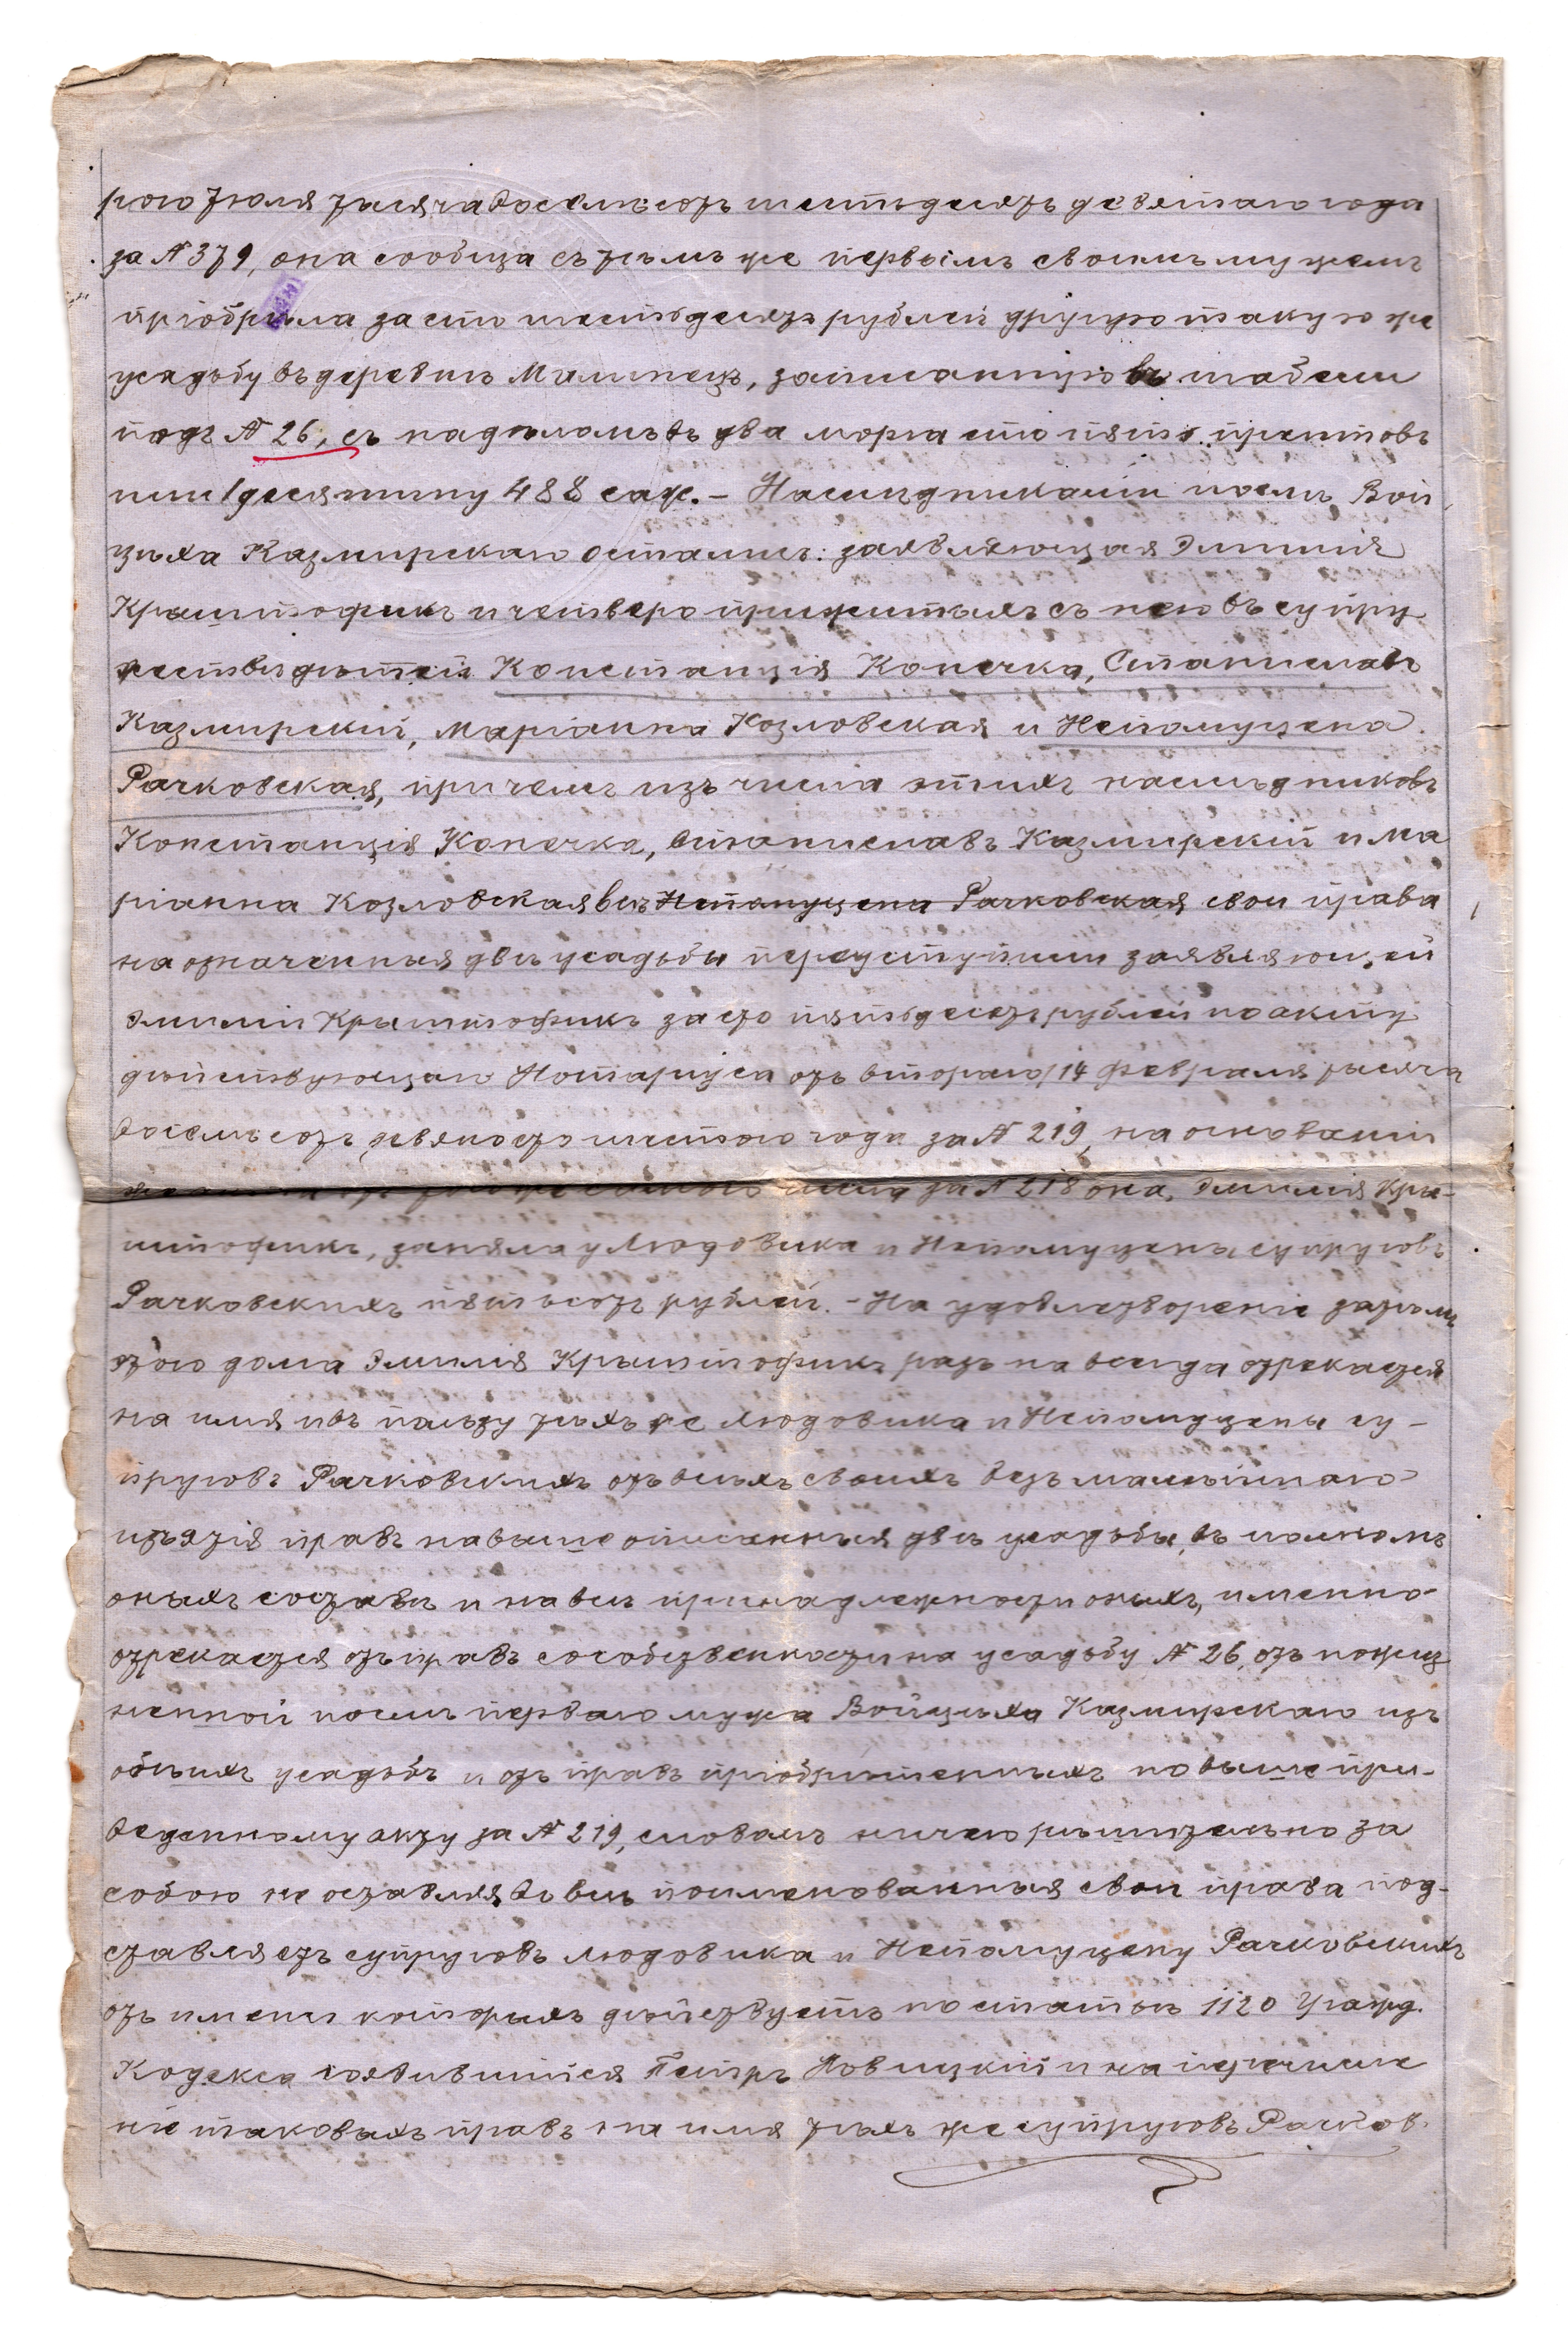 рого Іюля тысяча восемьсотъ шестьдесятъ девятаго года
за № 379, она сообща съ тѣмъ же первымъ своимъ мужемъ
пріобрѣла за сто шестьдесятъ рублей другую такую же
усадьбу въ деревнѣ Малинецъ, записанную въ табели
подъ № 26, съ надѣломъ въ два морга сто пять прентовъ
или 1 десятину 488 саж. – Наслѣдниками послѣ Вой
цѣха Казмирскаго остались: заявляющая Эмилія
Крыштофикъ и четверо прижитыхъ съ нею въ супру
жествѣ дѣтей Констанція Копечка, Станиславъ
Казмирскій, Маріанна Козловская и Непомуцена
Рачковская, причемъ изъ числа этихъ наслѣдниковъ
Констанція Копечка, Станиславъ Казмирскій и Ма
ріанна Козловская всѣ Непомуцена Рачковская свои права
на означенныя двѣ усадьбы переуступили заявляющей
Эмиліи Крыштофикъ за сто пятьдесятъ рублей по акту
дѣйствующаго Нотаріуса отъ втораго/14 Февраля тысяча
восемьсотъ девяносто шестого года за № 219, на основаніи
за № 218 она, Эмилія Кры-
штофикъ, заняла у Людовика и Непомуцены супруговъ
Рачковскихъ пятьсотъ рублей. – На удовлетвореніе затѣмъ
этого долга Эмилія Крыштофикъ разъ на всегда отрекается
на имя и въ пользу тѣхъ же Людовика и Непомуцены су-
пруговъ Рачковскихъ отъ всѣхъ своихъ безъ малѣйшаго
изъятія правъ на вышеописанныя двѣ усадьбы, въ полномъ
оныхъ составѣ и на всѣ принадлежности оныхъ, именно
отрекается отъ правъ собственности на усадьбу № 26, отъ пожиз
ненной послѣ перваго мужа Войцѣха Казмирскаго изъ
обѣихъ усадьбъ и отъ правъ пріобрѣтенныхъ по выше при-
веденному акту за № 219, словомъ ничего рѣшительно за
собою не оставляя во всѣ поименованныя свои права под-
ставляетъ супруговъ Людовика и Непомуцену Рачковскихъ
отъ имени которыхъ дѣйствуетъ по статьѣ 1120 Гражд.
Кодекса явившійся Петръ Новицкій и на перечисле
ніе таковыхъ правъ на имя тѣхъ же супруговъ Рачков